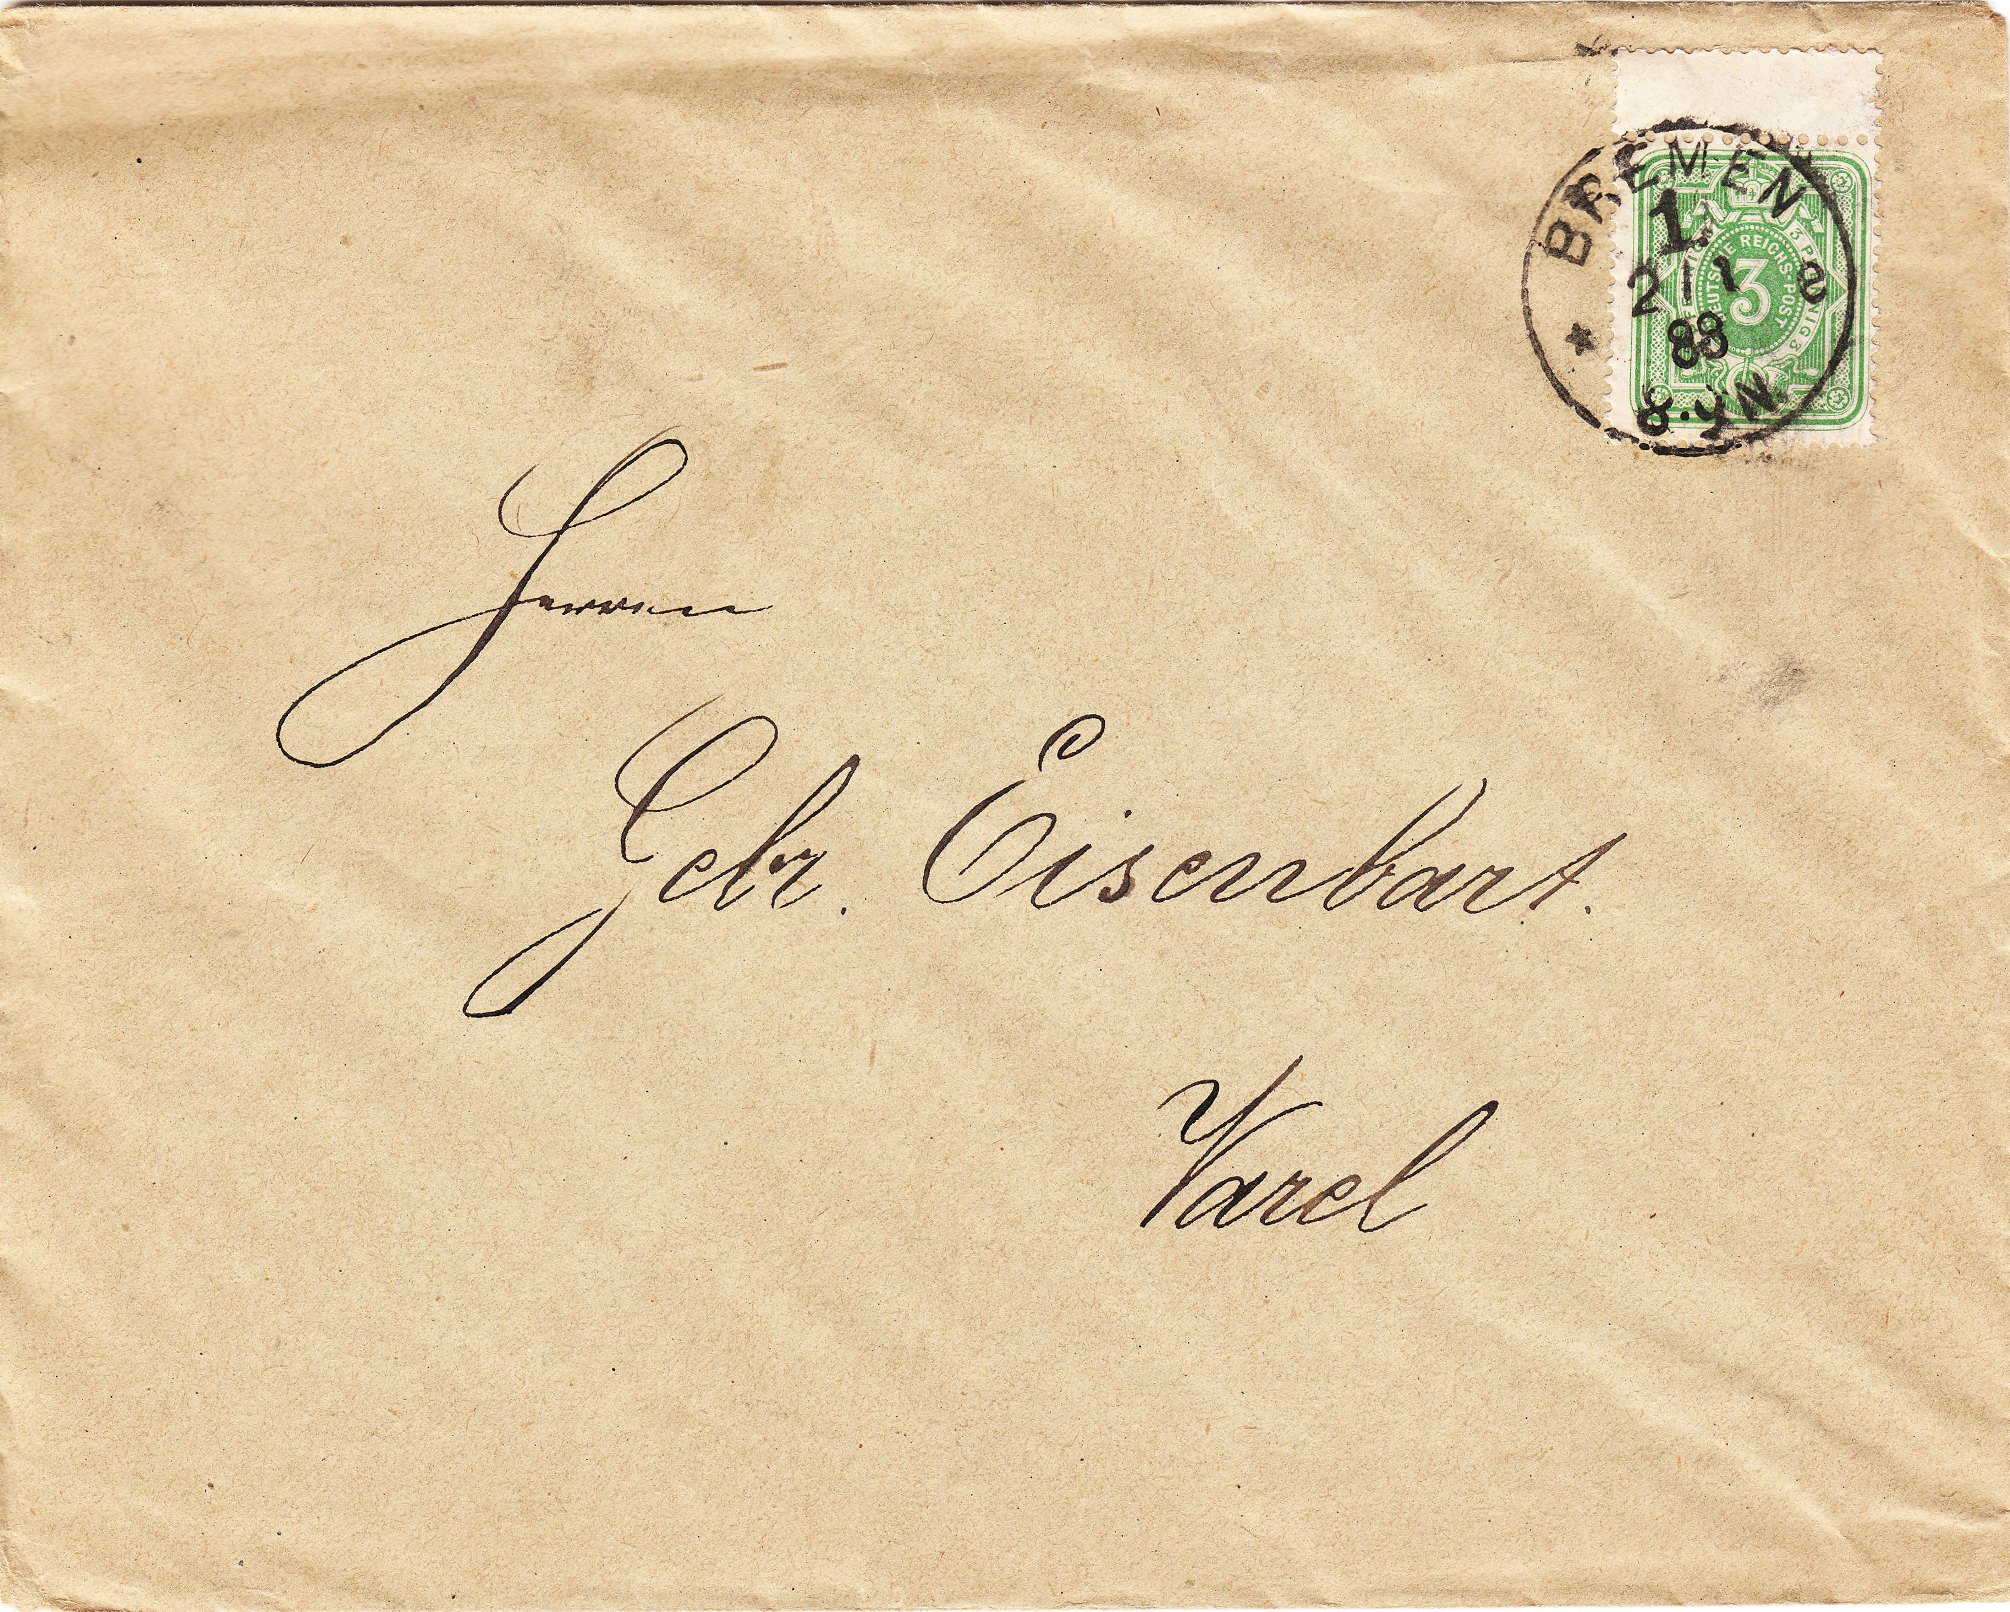 BREMEN
1.
2 1 1 a
88
8-9N.
DEUTSCHE REICHS-POST
3 PFENNIG 3
3
Herren
Gebr. Eisenbart.
Varel